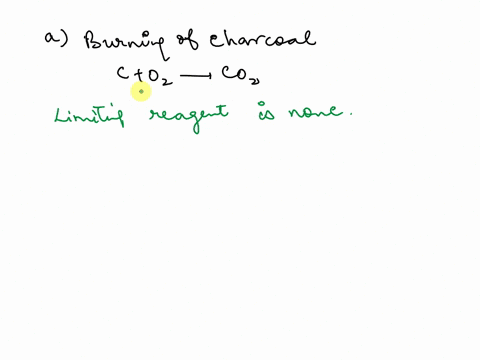 a) Burning of charcoal
C + O₂ ⟶ CO₂
Limiting reagent is none.